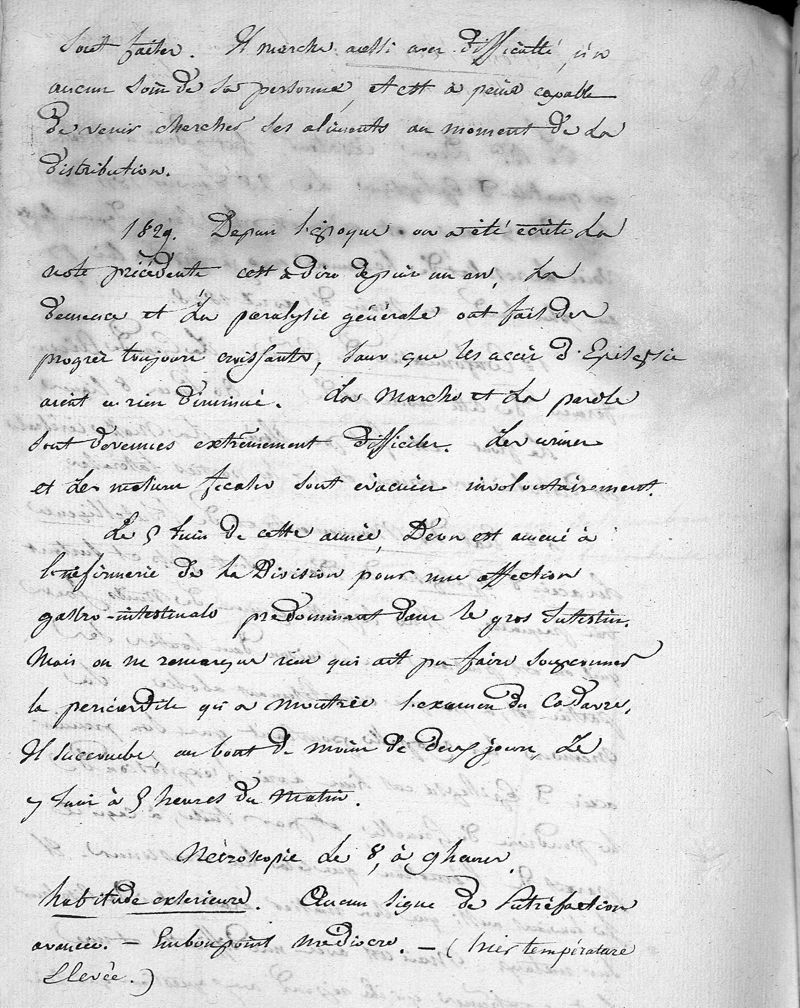 sont faites. Il marche aussi avec difficulté, n'a
aucun soin de sa personne, et est à peine capable
de venir chercher ses aliments au moment de la
distribution.
1829. Depuis l'époque où a été écrite la
note précédente c'est à dire depuis un an, la
demence et la paralysie générale ont fait des
progrès toujours croissants, sans que les accès d'Epilepsie
aient en rien diminué. La marche et la parole
sont devenues extrêmement difficiles. Les urines
et les matieres fecales sont évacuées involontairement.
Le 5 Juin de cette année, est amené à
l'infirmerie de la Division pour une affection
gastro-intestinale prédominant dans le gros Intestin.
Mais on ne remarque rien qui ait pu faire soupçonner
la péricardite qu'a montrée l'examen du Cadavre.
Il succombe, au bout de moins de deux jours, Le
7 Juin à 5 heures du Matin.
Nécroscopie le 8, à 9 heures.
habitude exterieure. Aucun signe de Putréfaction
avancée. — Embonpoint mediocre. — ( hier température
Elevée. )